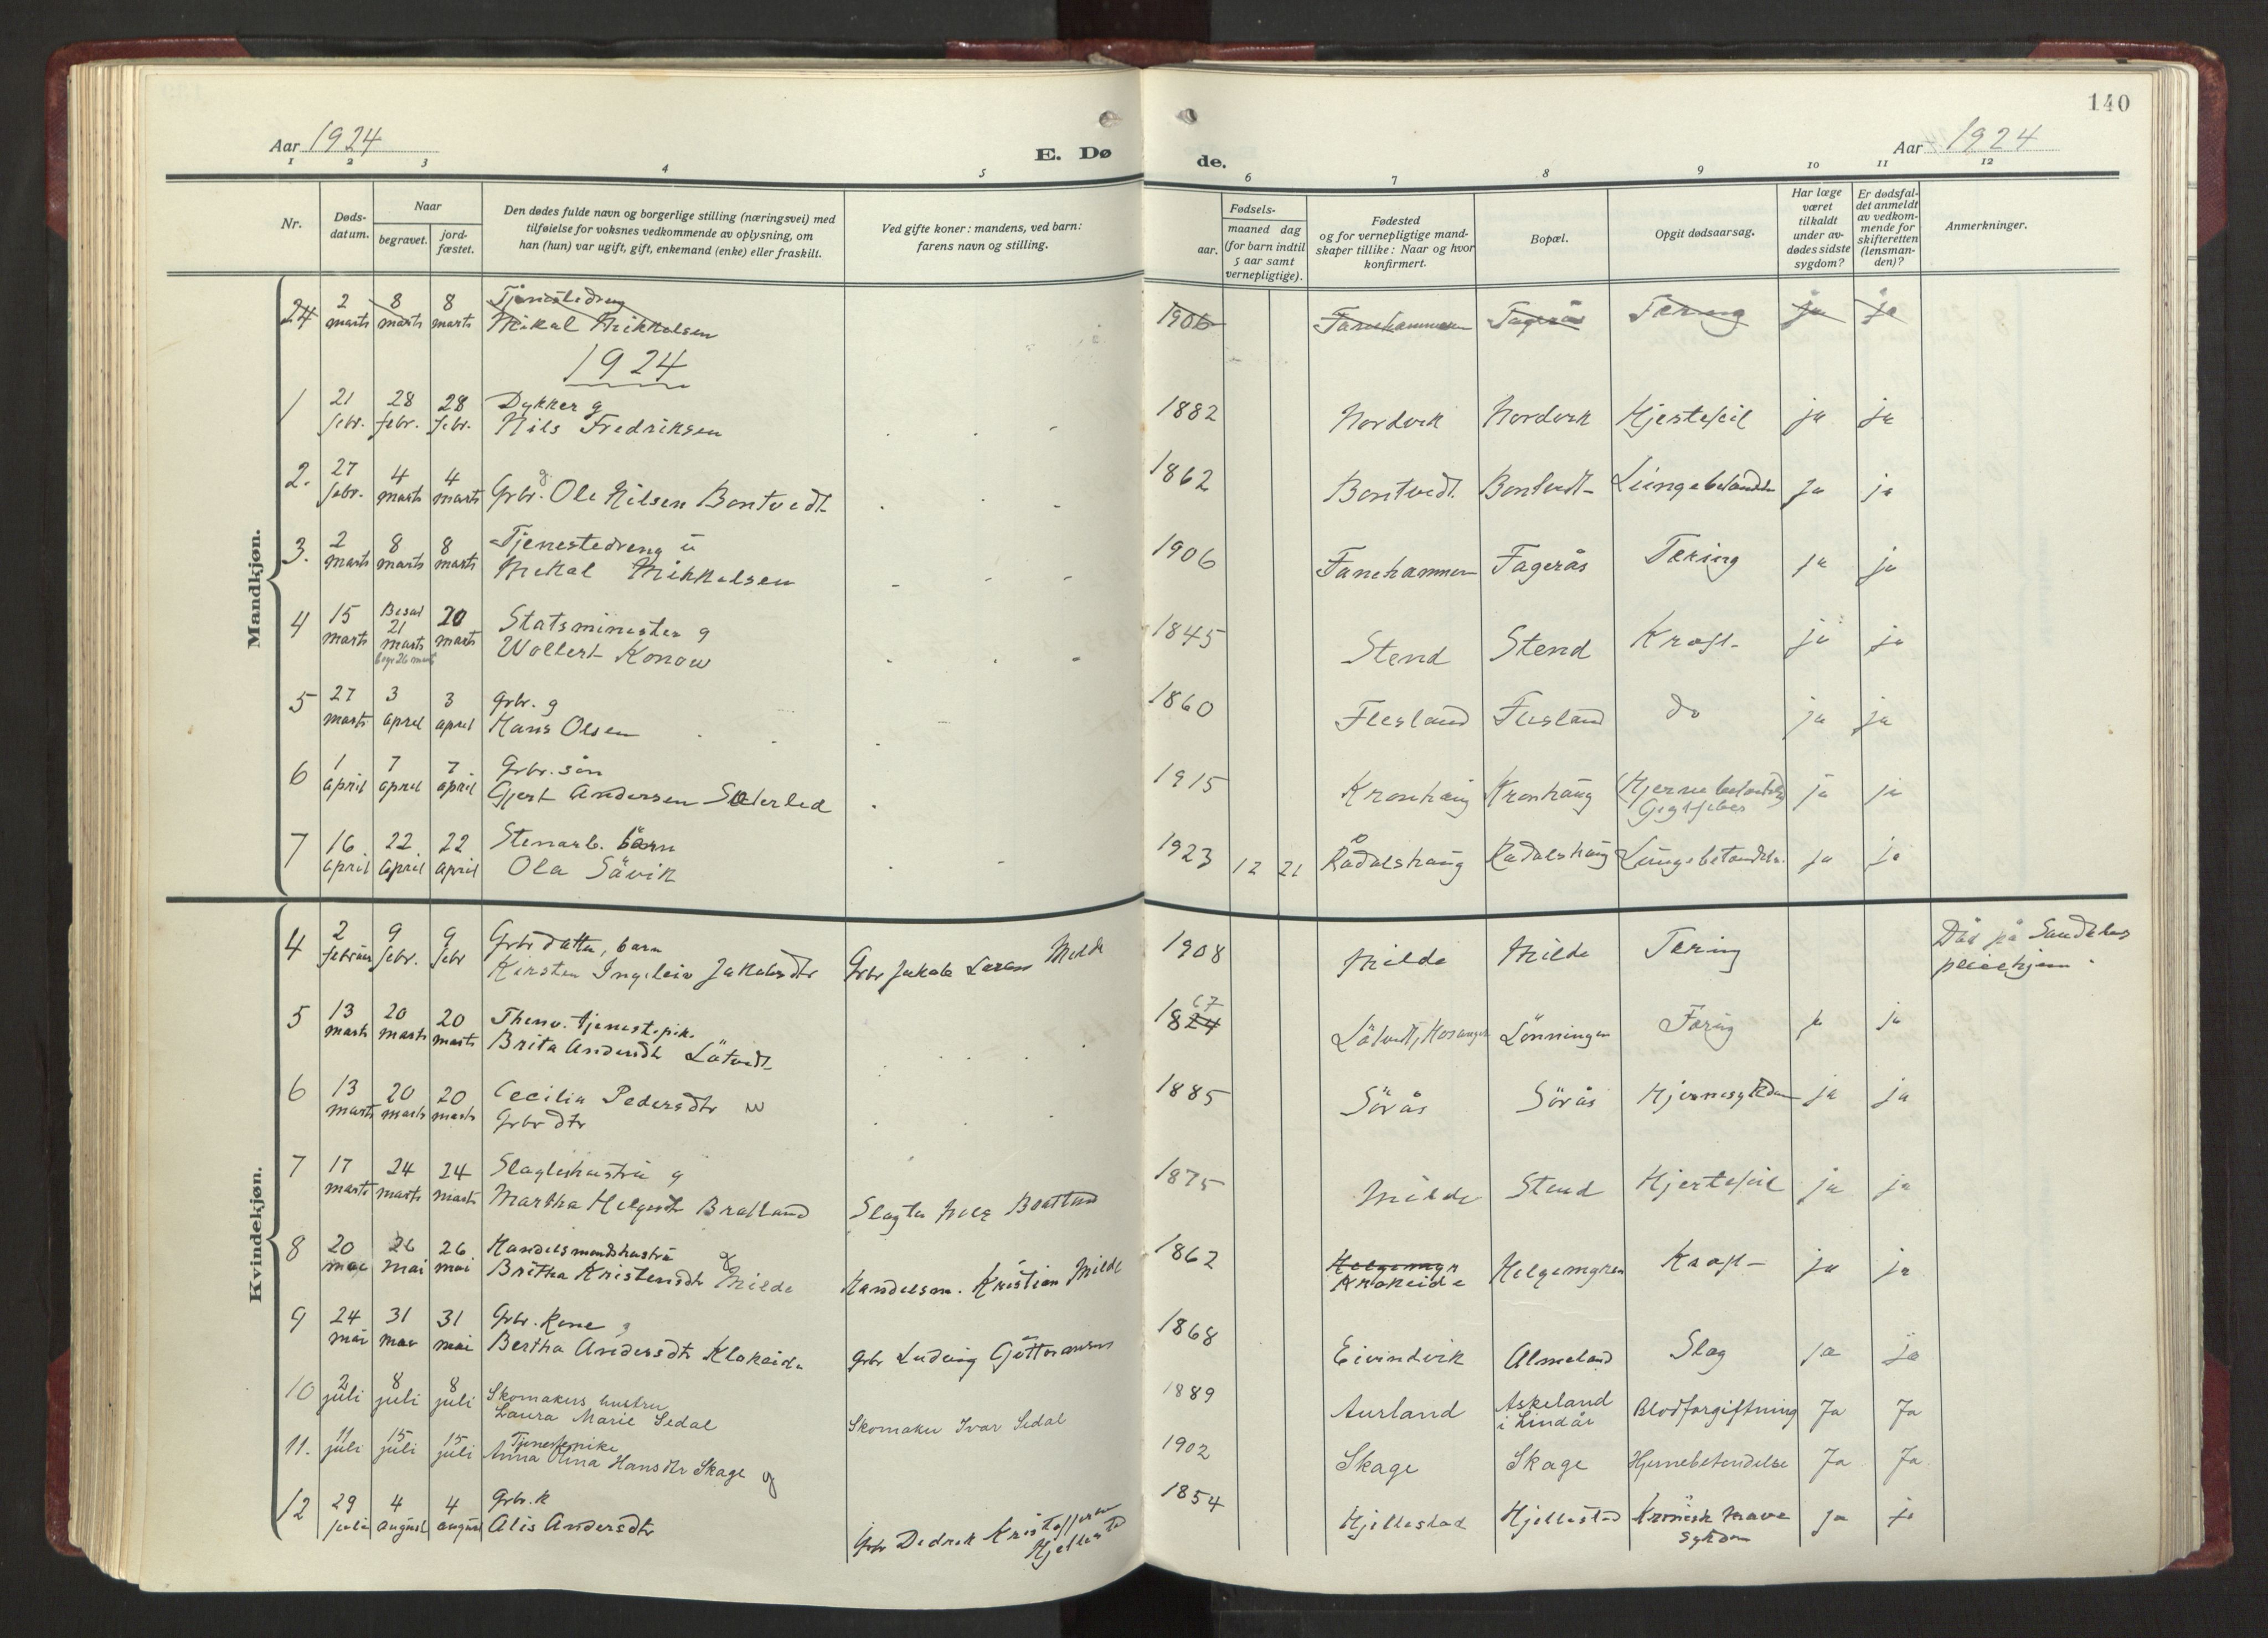 140
Aar 1924
E. Dø
de.
Aar 1924
1 2 3 4 5 6 7 8 9 10 11 12
Nr.
Døds-
datum.
Naar
begravet.
jord-
fæstet.
Den dødes fulde navn og borgerlige stilling (næringsvei) med
tilføielse for voksnes vedkommende av oplysning, om
han (hun) var ugift, gift, enkemand (enke) eller fraskilt.
Ved gifte koner: mandens, ved barn:
farens navn og stilling.
Fødsels-
aar.
maaned dag
(for barn indtil
5 aar samt
vernepligtige).
Fødested
og for vernepligtige mand-
skaper tillike: Naar og hvor
konfirmert.
Bopæl.
Opgit dødsaarsag.
Har læge
været
tilkaldt
under av-
dødes sidste
sygdom?
Er dødsfal-
det anmeldt
av vedkom-
mende for
skifteretten
(lensman-
den)?
Anmerkninger.
Mandkjøn.
24 2 marts 8 marts 8 marts Tjenestedreng
Mikal Mikkelsen 1906 Fanehammeren Fagerås Tæring ja ja
1924
1 21 febr. 28 febr. 28 febr. Dykker g
Nils Fredriksen 1882 Nordvik Nordvik Hjertefeil ja ja
2. 27 febr. 4 marts 4 marts Grbr. g Ole Nilsen Bontvedt 1862 Bontvedt Bontvedt Lungebetændelse ja ja
3. 2 marts 8 marts 8 marts Tjenestedreng u
Mikal Mikkelsen 1906 Fanehammeren Fagerås Tæring ja ja
4 15 marts Bisat 21 marts begr 26 marts 20 marts Statsminister g
Wollert Konow 1845 Stend Stend Kræft ja ja
5 27 marts 3 april 3 april Grbr. g
Hans Olsen 1860 Flesland Flesland do ja ja
6 1 april 7 april 7 april Grbr. sön
Gjert Andersen Säterlid 1915 Kronhaug Kronhaug Hjernebetændelse
Gigtfeber ja ja
7 16 april 22 april 22 april Stenarb. barn
Ola Sävik 1923 12 21 Rådalshaug Rådalshaug Lungebetændelse ja ja
Kvindekjøn.
4 2 februar 9 febr. 9 febr Grbr datter, barn
Kirsten Ingeleiv Jakobsdtr Grbr Jakob Larsen Milde 1908 Milde Milde Tæring Död på Sandvikens
pleiehjem
5 13 marts 20 marts 20 marts Thenv. tjenestepik.
Brita Andersdtr Låtvedt 1824 67 Låtvedt, Hosanger Lönningen Tæring ja ja
6 13 marts 20 marts 20 marts Cecilia Pedersdtr u
Grbr dtr 1885 Sörås Sörås Hjernesykdom ja ja
7 17 marts 24 marts 24 marts Slagterhustru g
Martha Helgesdtr Bratland Slagter Bratland 1875 Milde Stend Hjertefeil ja ja
8 20 mai 26 mai 26 mai Handelsmandshustru
Britha Kristensdtr g Milde Handelsm. Kristian Milde 1862 Helgemyr
Krokeide Helgemyren Kræft ja ja
9 24 mai 31 mai 31 mai Grbr. kone g
Bertha Andersdtr Klokeide Grbr Ludvig Guttormsen 1868 Eivindvik Almeland Slag ja ja
10 2 juli 8 juli 8 juli Skomakers hustru
Laura Marie Sedal Skomaker Ivar Sedal 1889 Aurland Askeland
i Lindås Blodforgiftning Ja Ja
11. 11 juli 15 juli 15 juli Tjenestepike
Anna Olina Hansdtr Skage g 1902 Skage Skage Hjernebetendelse Ja Ja
12 29 juli 4 august 4 august Grbr. k
Alis Andersdtr Grbr Dedrik Kristoffersen
Hjellestad 1854 Hjellestad Hjellestad Kronisk mave
sykdom ja ja